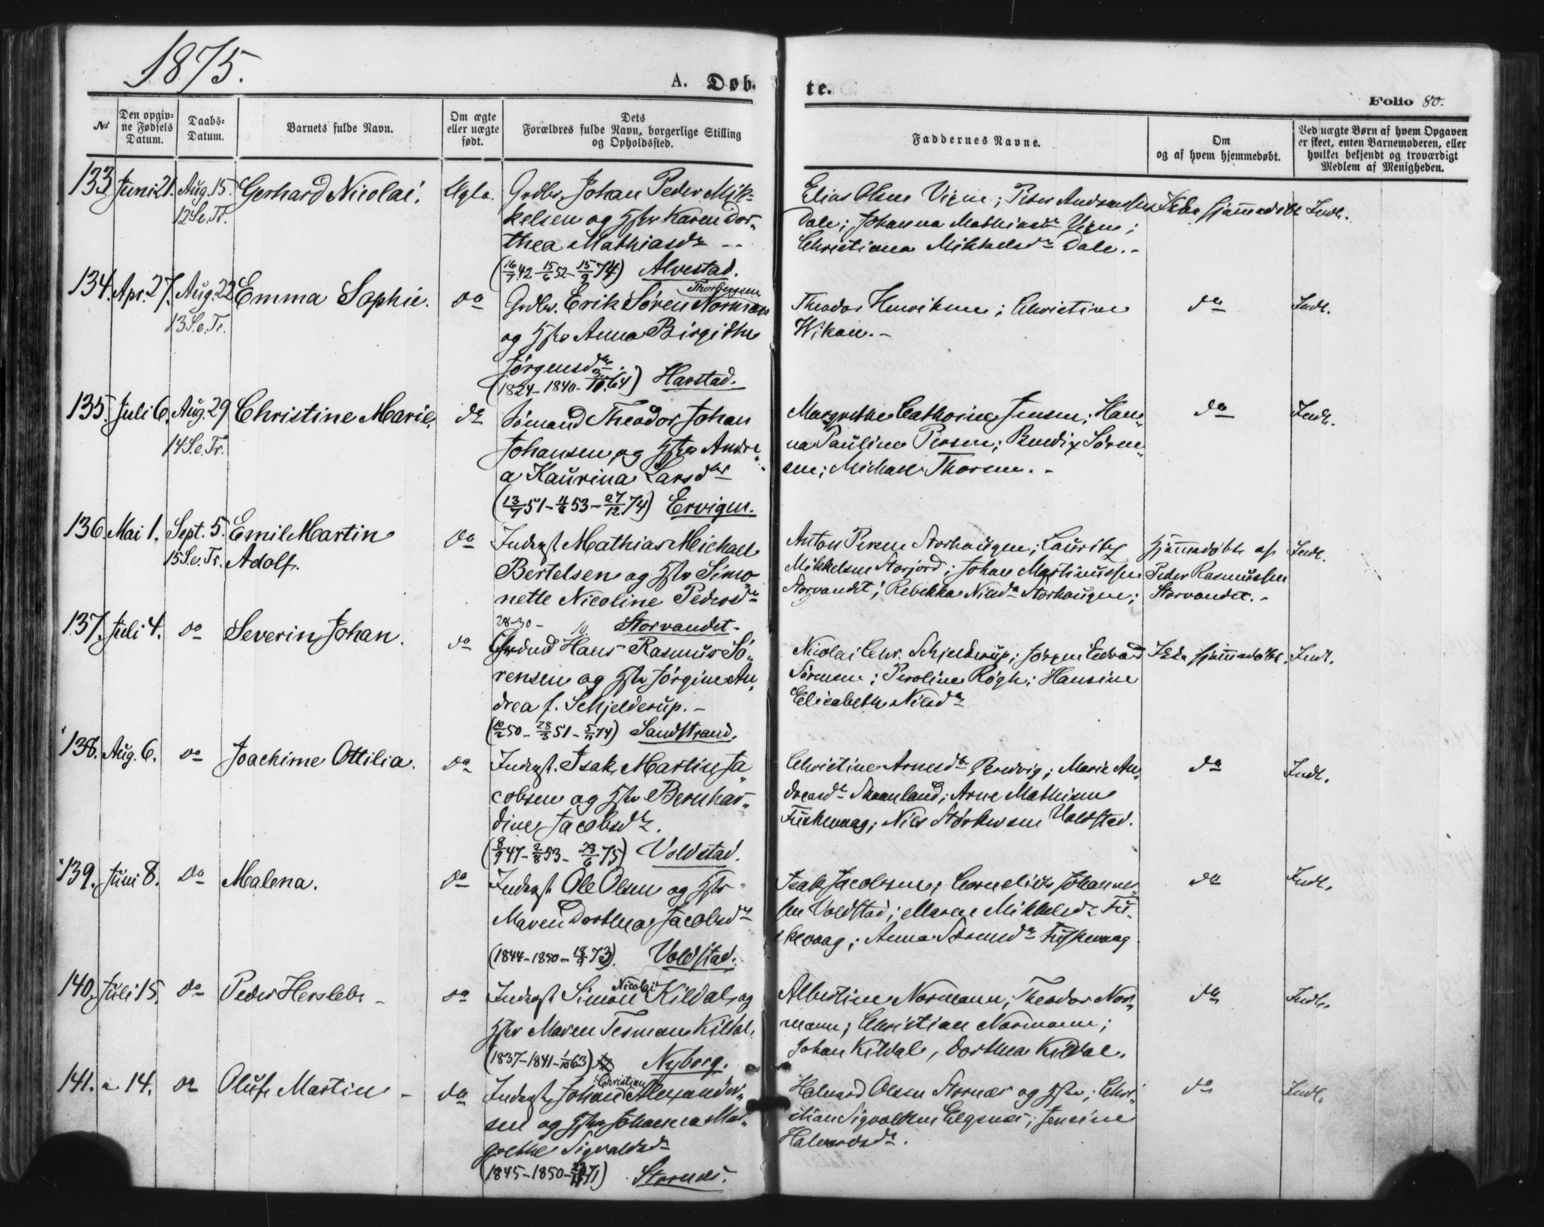 1875.
A. Døb-
te.
Folio 80.
№
Den opgiv-
ne Fødsels
Datum.
Daabs-
Datum.
Barnets fulde Navn.
Om ægte
eller uægte
født.
Dets
Forældres fulde Navn, borgerlige Stilling
og Opholdssted.
Faddernes Navne.
Om
og af hvem hjemmedøbt.
Ved uægte Børn af hvem Opgaven
er skeet, enten Barnemoderen, eller
hvilket bekjendt og troværdigt
Medlem af Menigheden.
133 Juni 21. Aug. 15. Gerhard Nicolai. Ægte Grdbr. Johan Peder Mik-
12 S.e.Tr. kelsen og Hstr Karen Dor-
thea Mathiasdr
(16/7 42 - 15/6 52 - 15/9 74) Alvestad.
Elias Olsen Vigen; Peter Andreassen
Dale; Johanna Mathiasdr Vigen;
Christiana Mikkelsdr Dale.
Ikke hjemmedøbt Indl.
134. Apr. 27. Aug. 22 Emma Sophie. do Grdbr. Erik Søren Normann
13 S.e.Tr. og Hstr Anna Birgithe
Jørgensdr
(1824 - 1840 - 64) Harstad.
Theodor Henriksen; Christine
Wikan.
do Indl.
135. Juli 6. Aug. 29 Christine Marie. do Sømand Theodor Johan
14 S.e.Tr. Johansen og Hstr Andre-
a Kaurina Larsdr
(13/7 51 - 53 - 27/12 74) Ervigen.
Margrethe Cathrine Jensen; Han-
na Pauline Persen; Bendix Søren-
sen; Michael Thoresen.
do Indl.
136. Mai 1. Sept. 5. Emil Martin do Inderst Mathias Michael
15 S.e.Tr. Adolf. Bertelsen og Hstr Simo-
nette Nicoline Pedersdr
28-30 - Storvandet.
Anton Storhaugen; Lauritz
Mikkelsen Storjord; Johan Martinussen
Storvandet; Rebekka Nilsdr Storhaugen;
Hjemmedøbt af
Peder Rasmussen
Storvandet.
Indl.
137. Juli 4. do Severin Johan. do Hans Rasmus Sø-
rensen og Hstr Jørgine An-
drea f. Schjelderup.
(50 - 28/3 51 - 74) Sandstrand.
Nicolai Chr. Schjelderup; Jørgen Edvard
Sørensen; Peroline Røgh; Hansine
Elisabeth Nilsdr
Ikke hjemmedøbt. Indl.
138. Aug. 6. do Joachime Ottilia. do Inderst. Isak Martin Ja-
cobsen og Hstr Bernhar-
dine Jacobsdr.
(8/9 47 - 2/8 53 - 23/6 75) Voldstad.
Christine Arnesdr Bredvig; Marie An-
dreasdr Skaanland; Arne Mathisen
Fiskevaag; Nils Størkersen Voldstad.
do Indl.
139. Juni 8. do Malena. do Inderst Ole Olsen og Hstr
Maren Dorthea Jacobsdr
(1844 - 1850 - 73) Voldstad.
Isak Jacobsen; Cornelius Johannes-
sen Voldstad; Maren Mikkelsdr Fi-
skevaag; Anna Fiskevaag
do Indl.
140. Juli 15. do Peder Hersleb. do Inderst Simon Nicolai Kildal og
Hstr Maren Tesman Kildal.
(1837 - 1841 - 63) Nyborg.
Albertine Normann; Theodor Nor-
mann; Christian Normann;
Johan Kildal, Dorthea Kildal.
do Indl.
141. " 14. do Oluf Martin do Inderst Johan Christian Alexander-
sen og Hstr Johanna Mar-
grethe Sigvaldsdr
(1845 - 1850 - 71) Stornæs.
Halvard Olsen Stornæs og Hstr; Chri-
stian Sigvaldsen Elgsnæs; Jensine
Halvorsdr.
do Indl.